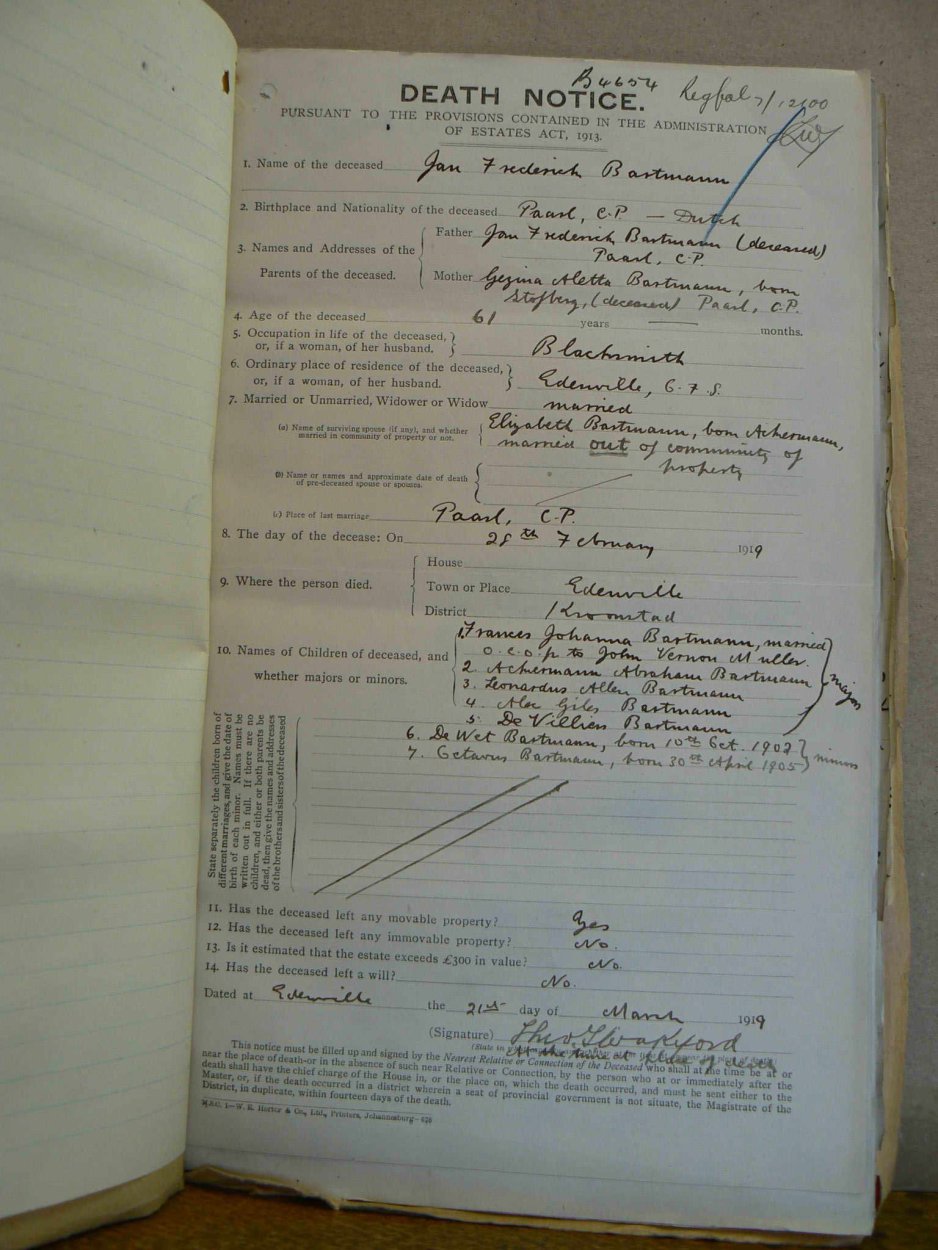 B 4654
DEATH NOTICE.
PURSUANT TO THE PROVISIONS CONTAINED IN THE ADMINISTRATION
OF ESTATES ACT, 1913.
1. Name of the deceased Jan Frederich Bartmann
2. Birthplace and Nationality of the deceased Paarl, C.P. — Dutch
3. Names and Addresses of the Parents of the deceased.
Father Jan Frederich Bartmann (deceased)
Paarl, C.P.
Mother Gezina Aletta Bartmann, born
Stofberg, (deceased) Paarl, C.P.
4. Age of the deceased 61 years — months.
5. Occupation in life of the deceased,
or, if a woman, of her husband. Blacksmith
6. Ordinary place of residence of the deceased,
or, if a woman, of her husband. Edenville, O.F.S.
7. Married or Unmarried, Widower or Widow married
(a) Name of surviving spouse (if any), and whether
married in community of property or not.
Elizabeth Bartmann, born Ackermann,
married out of community of
property
(b) Name or names and approximate date of death
of pre-deceased spouse or spouses.
(c) Place of last marriage Paarl, C.P.
8. The day of the decease: On 28th February 1919
9. Where the person died.
House
Town or Place Edenville
District Kroonstad
10. Names of Children of deceased, and
whether majors or minors.
1. Frances Johanna Bartmann, married
O.C.O.P. to John Vernon Muller.
2. Ackermann Abraham Bartmann
3. Leonardus Allen Bartmann
4. Alex Giles Bartmann
5. De Villiers Bartmann
majors
6. De Wet Bartmann, born 10th Oct. 1902
7. Octavus Bartmann, born 30th April 1905
minors
State separately the children born of
different marriages, and give the date of
birth of each minor. Names must be
written out in full. If there are no
children, and either or both parents be
dead, then give the names and addresses
of the brothers and sisters of the deceased
11. Has the deceased left any movable property? Yes
12. Has the deceased left any immovable property? No.
13. Is it estimated that the estate exceeds £300 in value? No.
14. Has the deceased left a will? No.
Dated at Edenville the 21st day of March 1919
(Signature)
This notice must be filled up and signed by the Nearest Relative or Connection of the Deceased who shall at the time be at or
near the place of death—or in the absence of such near Relative or Connection, by the person who at or immediately after the
death shall have the chief charge of the House in, or the place on, which the death occurred, and must be sent either to the
Master, or, if the death occurred in a district wherein a seat of provincial government is not situate, the Magistrate of the
District, in duplicate, within fourteen days of the death.
W. E. Hortor & Co., Ltd., Printers, Johannesburg